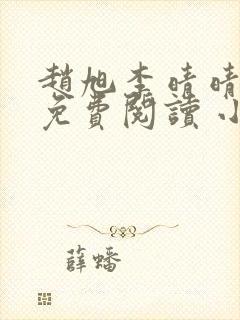 趙旭李晴晴
免費閱讀 小
薛蟠